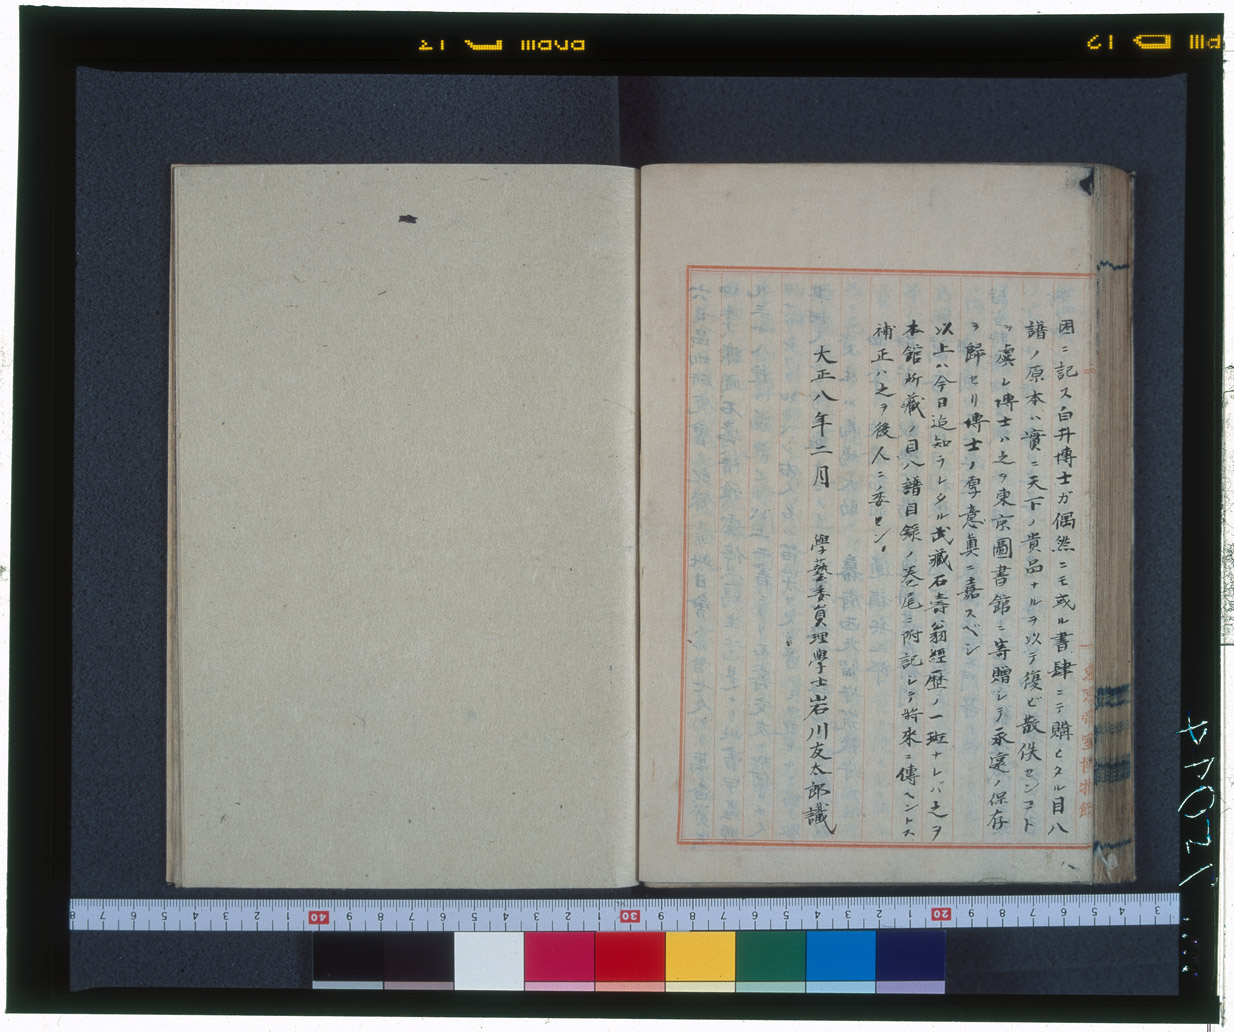 因ニ記ス白井博士ガ偶然ニモ或ル書肆ニテ購ヒタル目八
譜ノ原本ハ實ニ天下ノ貴品ナルヲ以テ復ビ散佚センコト
ヲ虞レ博士ハ之ヲ東京圖書館ニ寄贈シテ永遠ノ保存
ヲ歸セリ博士ノ厚意眞ニ嘉スベシ
以上ハ今日迄知ラレタル武藏石壽翁經歴ノ一斑ナレバ之ヲ
本館所藏ノ目八譜目錄ノ卷尾ニ附記シテ將來ニ傳ヘントス
補正ハ之ヲ後人ニ委セン
大正八年二月 學藝委員理學士岩川友太郎識